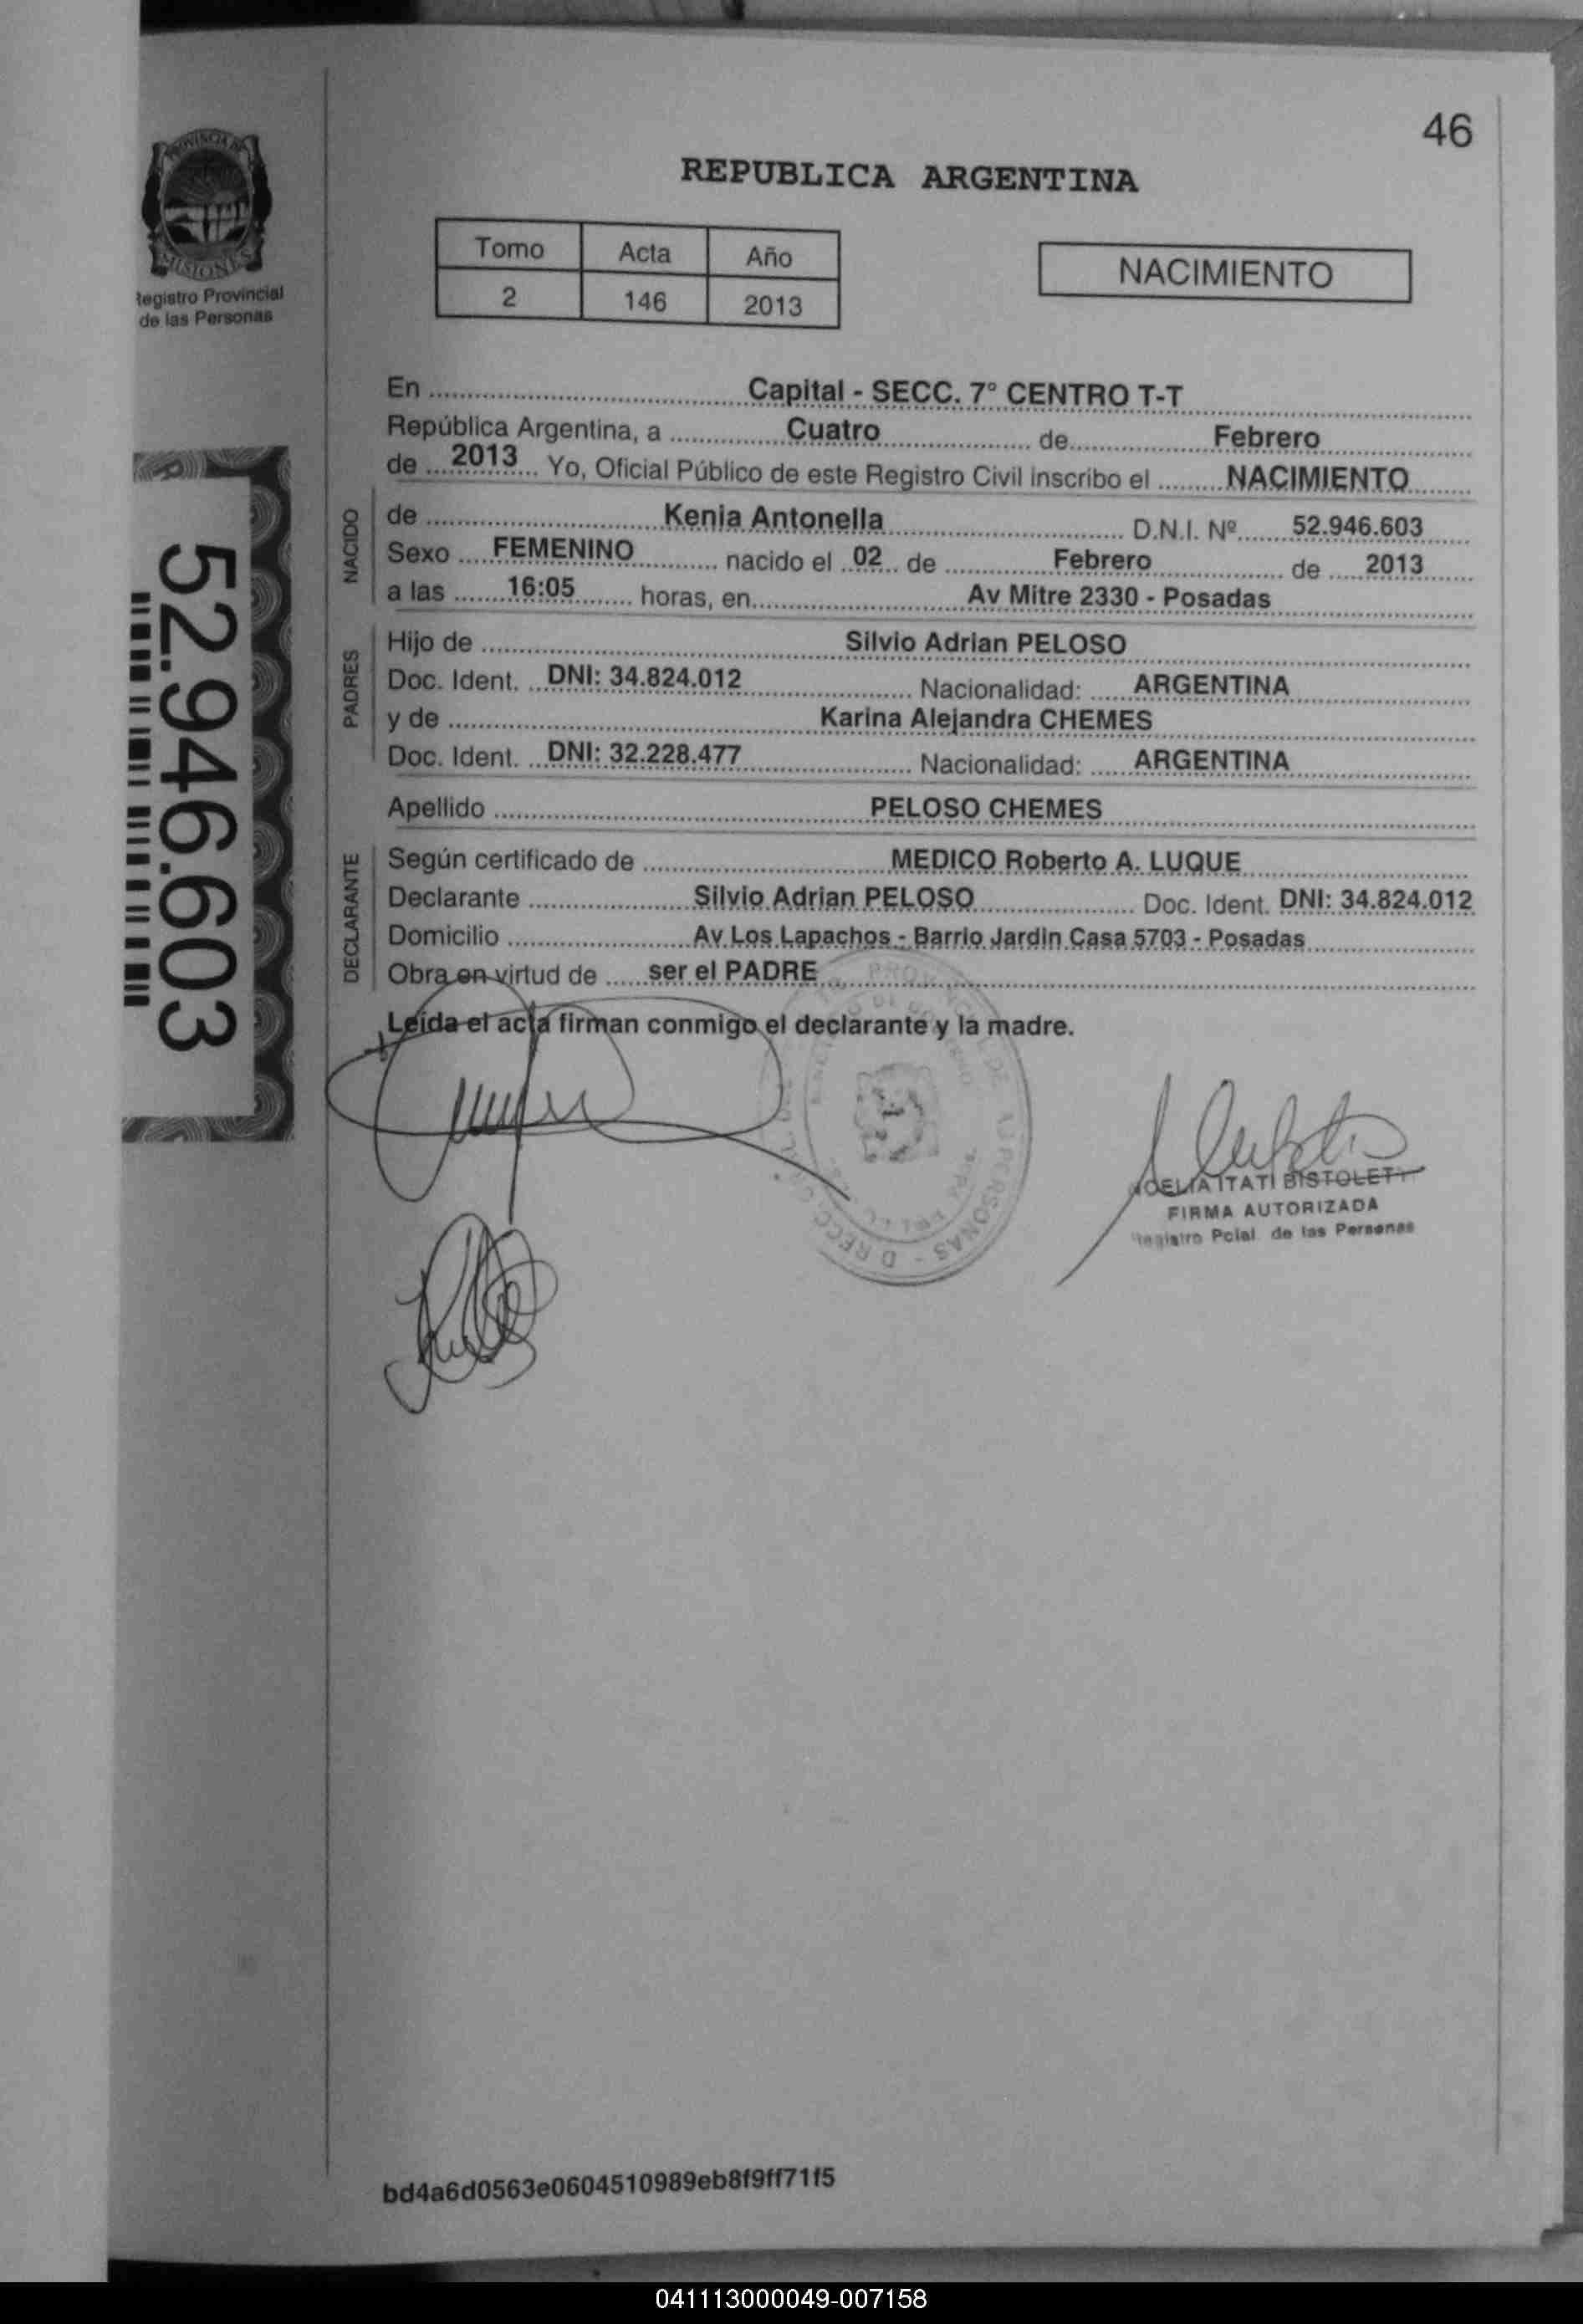 46
PROVINCIA DE
MISIONES
Registro Provincial
de las Personas
REPUBLICA ARGENTINA
Tomo Acta Año
2 146 2013
NACIMIENTO
En Capital - SECC. 7° CENTRO T-T
República Argentina, a Cuatro de Febrero
de 2013 Yo, Oficial Público de este Registro Civil inscribo el NACIMIENTO
NACIDO
de Kenia Antonella D.N.I. Nº 52.946.603
Sexo FEMENINO nacido el 02 de Febrero de 2013
a las 16:05 horas, en Av Mitre 2330 - Posadas
PADRES
Hijo de Silvio Adrian PELOSO
Doc. Ident. DNI: 34.824.012 Nacionalidad: ARGENTINA
y de Karina Alejandra CHEMES
Doc. Ident. DNI: 32.228.477 Nacionalidad: ARGENTINA
Apellido PELOSO CHEMES
DECLARANTE
Según certificado de MEDICO Roberto A. LUQUE
Declarante Silvio Adrian PELOSO Doc. Ident. DNI: 34.824.012
Domicilio Av Los Lapachos - Barrio Jardin Casa 5703 - Posadas
Obra en virtud de ser el PADRE
Leída el acta firman conmigo el declarante y la madre.
52.946.603
ITATI BISTOLETTI
FIRMA AUTORIZADA
Registro Pcial. de las Personas
bd4a6d0563e0604510989eb8f9ff71f5
041113000049-007158